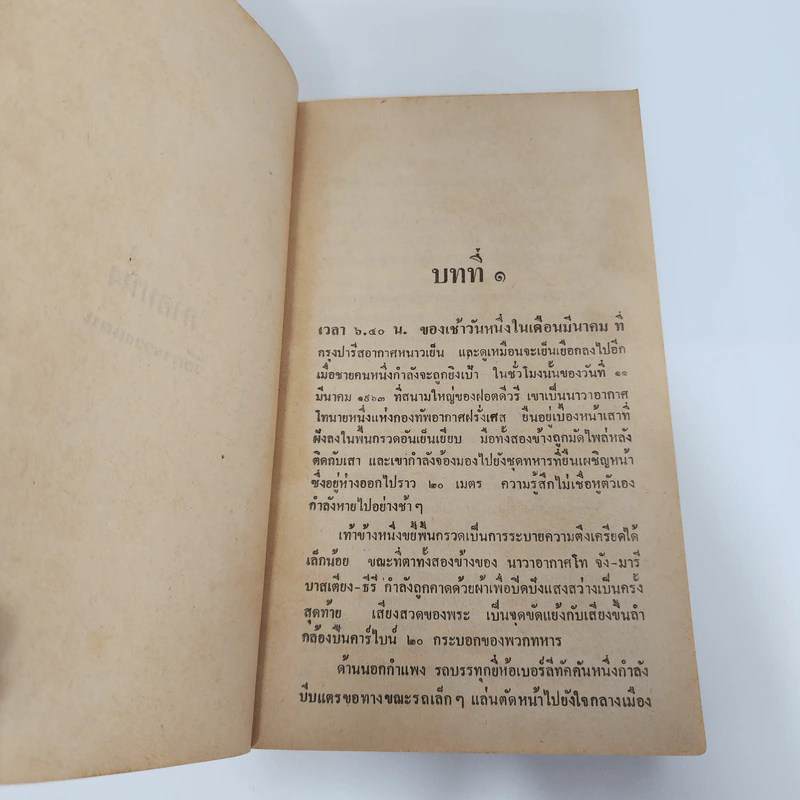 บทที่ ๑
เวลา ๖.๔๐ น. ของเช้าวันหนึ่งในเดือนมีนาคม ที่
กรุงปารีสอากาศหนาวเย็น และดูเหมือนจะเย็นเยือกลงไปอีก
เมื่อชายคนหนึ่งกำลังจะถูกยิงเป้า ในชั่วโมงนั้นของวันที่ ๑๑
มีนาคม ๑๙๖๓ ที่สนามใหญ่ของฝอตดีวรี เขาเป็นนาวาอากาศ
โทนายหนึ่งแห่งกองทัพอากาศฝรั่งเศส ยืนอยู่เบื้องหน้าเสาที่
ฝังลงในพื้นกรวดอันเย็นเยียบ มือทั้งสองข้างถูกมัดไพล่หลัง
ติดกับเสา และเขากำลังจ้องมองไปยังชุดทหารที่ยืนเผชิญหน้า
ซึ่งอยู่ห่างออกไปราว ๒๐ เมตร ความรู้สึกไม่เชื่อหูตัวเอง
กำลังหายไปอย่างช้า ๆ
เท้าข้างหนึ่งขยี้พื้นกรวดเป็นการระบายความตึงเครียดได้
เล็กน้อย ขณะที่ตาทั้งสองข้างของ นาวาอากาศโท จัง-มารี
บาสเตียง-ธีรี่ กำลังถูกคาดด้วยผ้าเพื่อปิดบังแสงสว่างเป็นครั้ง
สุดท้าย เสียงสวดของพระ เป็นจุดขัดแย้งกับเสียงขึ้นลำ
กล้องปืนคาร์ไบน์ ๒๐ กระบอกของพวกทหาร
ด้านนอกกำแพง รถบรรทุกยี่ห้อเบอร์ลีทัคคันหนึ่งกำลัง
บีบแตรขอทางขณะรถเล็ก ๆ แล่นตัดหน้าไปยังใจกลางเมือง